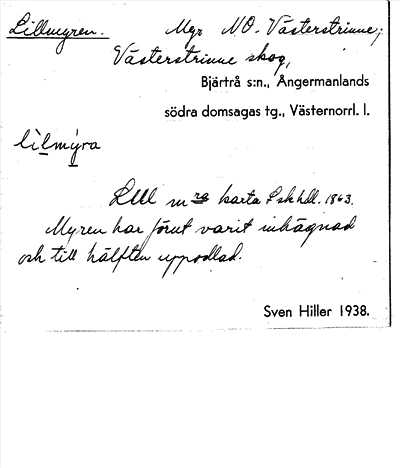 Lillmyren. Myr NO. Västerstrinne;
Västerstrinne skog,
Bjärtrå s:n., Ångermanlands
södra domsagas tg., Västernorrl. l.
lìlmýra
LUU m karta 1863.
Myren har förut varit inhägnad
och till hälften uppodlad.
Sven Hiller 1938.